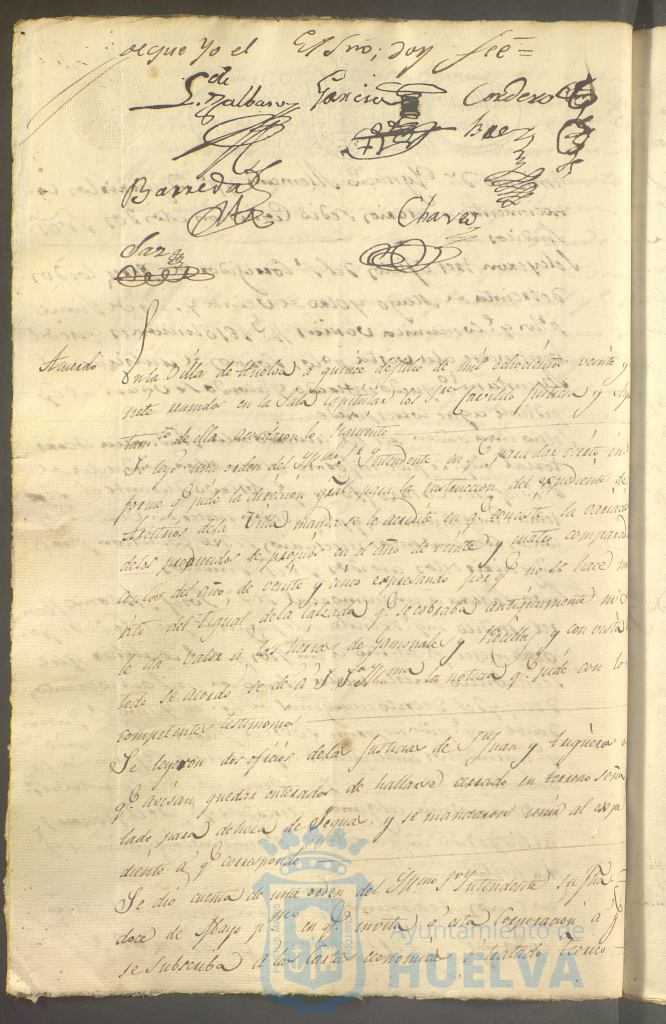 de que yo el Essno; doy feé=
L.do Malbar García Cordero
Baez
Barreda
Chaves
Saz
Acuerdo
En la Villa de Huelva á quince de julio de mil ochocientos veinte y
siete reunidos en la Sala Capitular los Sres Cavildo Justicia y Ayun
tamto de ella acordaron lo siguiente
Se leyó una orden del Yllmo Sr Yntendente en qe para dar cierto in
forme qe pide la direccion gral para la instruccion del expediente de
Arbitrios dela Villa manda se le acredite en qe consiste la variacion
delos productos de propios en el año de veinte y cuatro comparados
con los del año de veinte y cinco expresando por qe no se hace
del de la Calzada qe se cobraba antiguamente ni
le da valor á las tierras de y y con vista
todo se acordó se dé á S. Sa Yllma la noticia qe pide con los
competentes testimonios
Se leyeron dos oficios dela Justicia de Sn Juan y Trigueros
qe avisan quedar enterados de hallarse cerrado en terreno seña
lado para dehesa de Yeguas, y se mandaron unir al expe
diente á qe corresponde
Se dió cuenta de una orden del Yllmo Sr Yntendente su fha
doce de Mayo pmo en qe invita á esta Corporacion á qe
se subscriba á la Carta economica ó tratado teorico
Ayuntamiento de
HUELVA